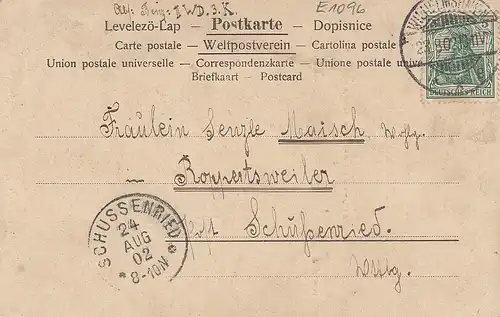 E1096
Levelező-Lap — Postkarte — Dopisnice
Carte postale — Weltpostverein — Cartolina postale
Union postale universelle — Correspondenzkarte — Unione postale unive
Briefkaart — Postcard
DEUTSCHES REICH
Fräulein Senzle Maisch
Roppertsweiler
Post Schußenried.
Wttbg.
SCHUSSENRIED
24
AUG
02
8-10N